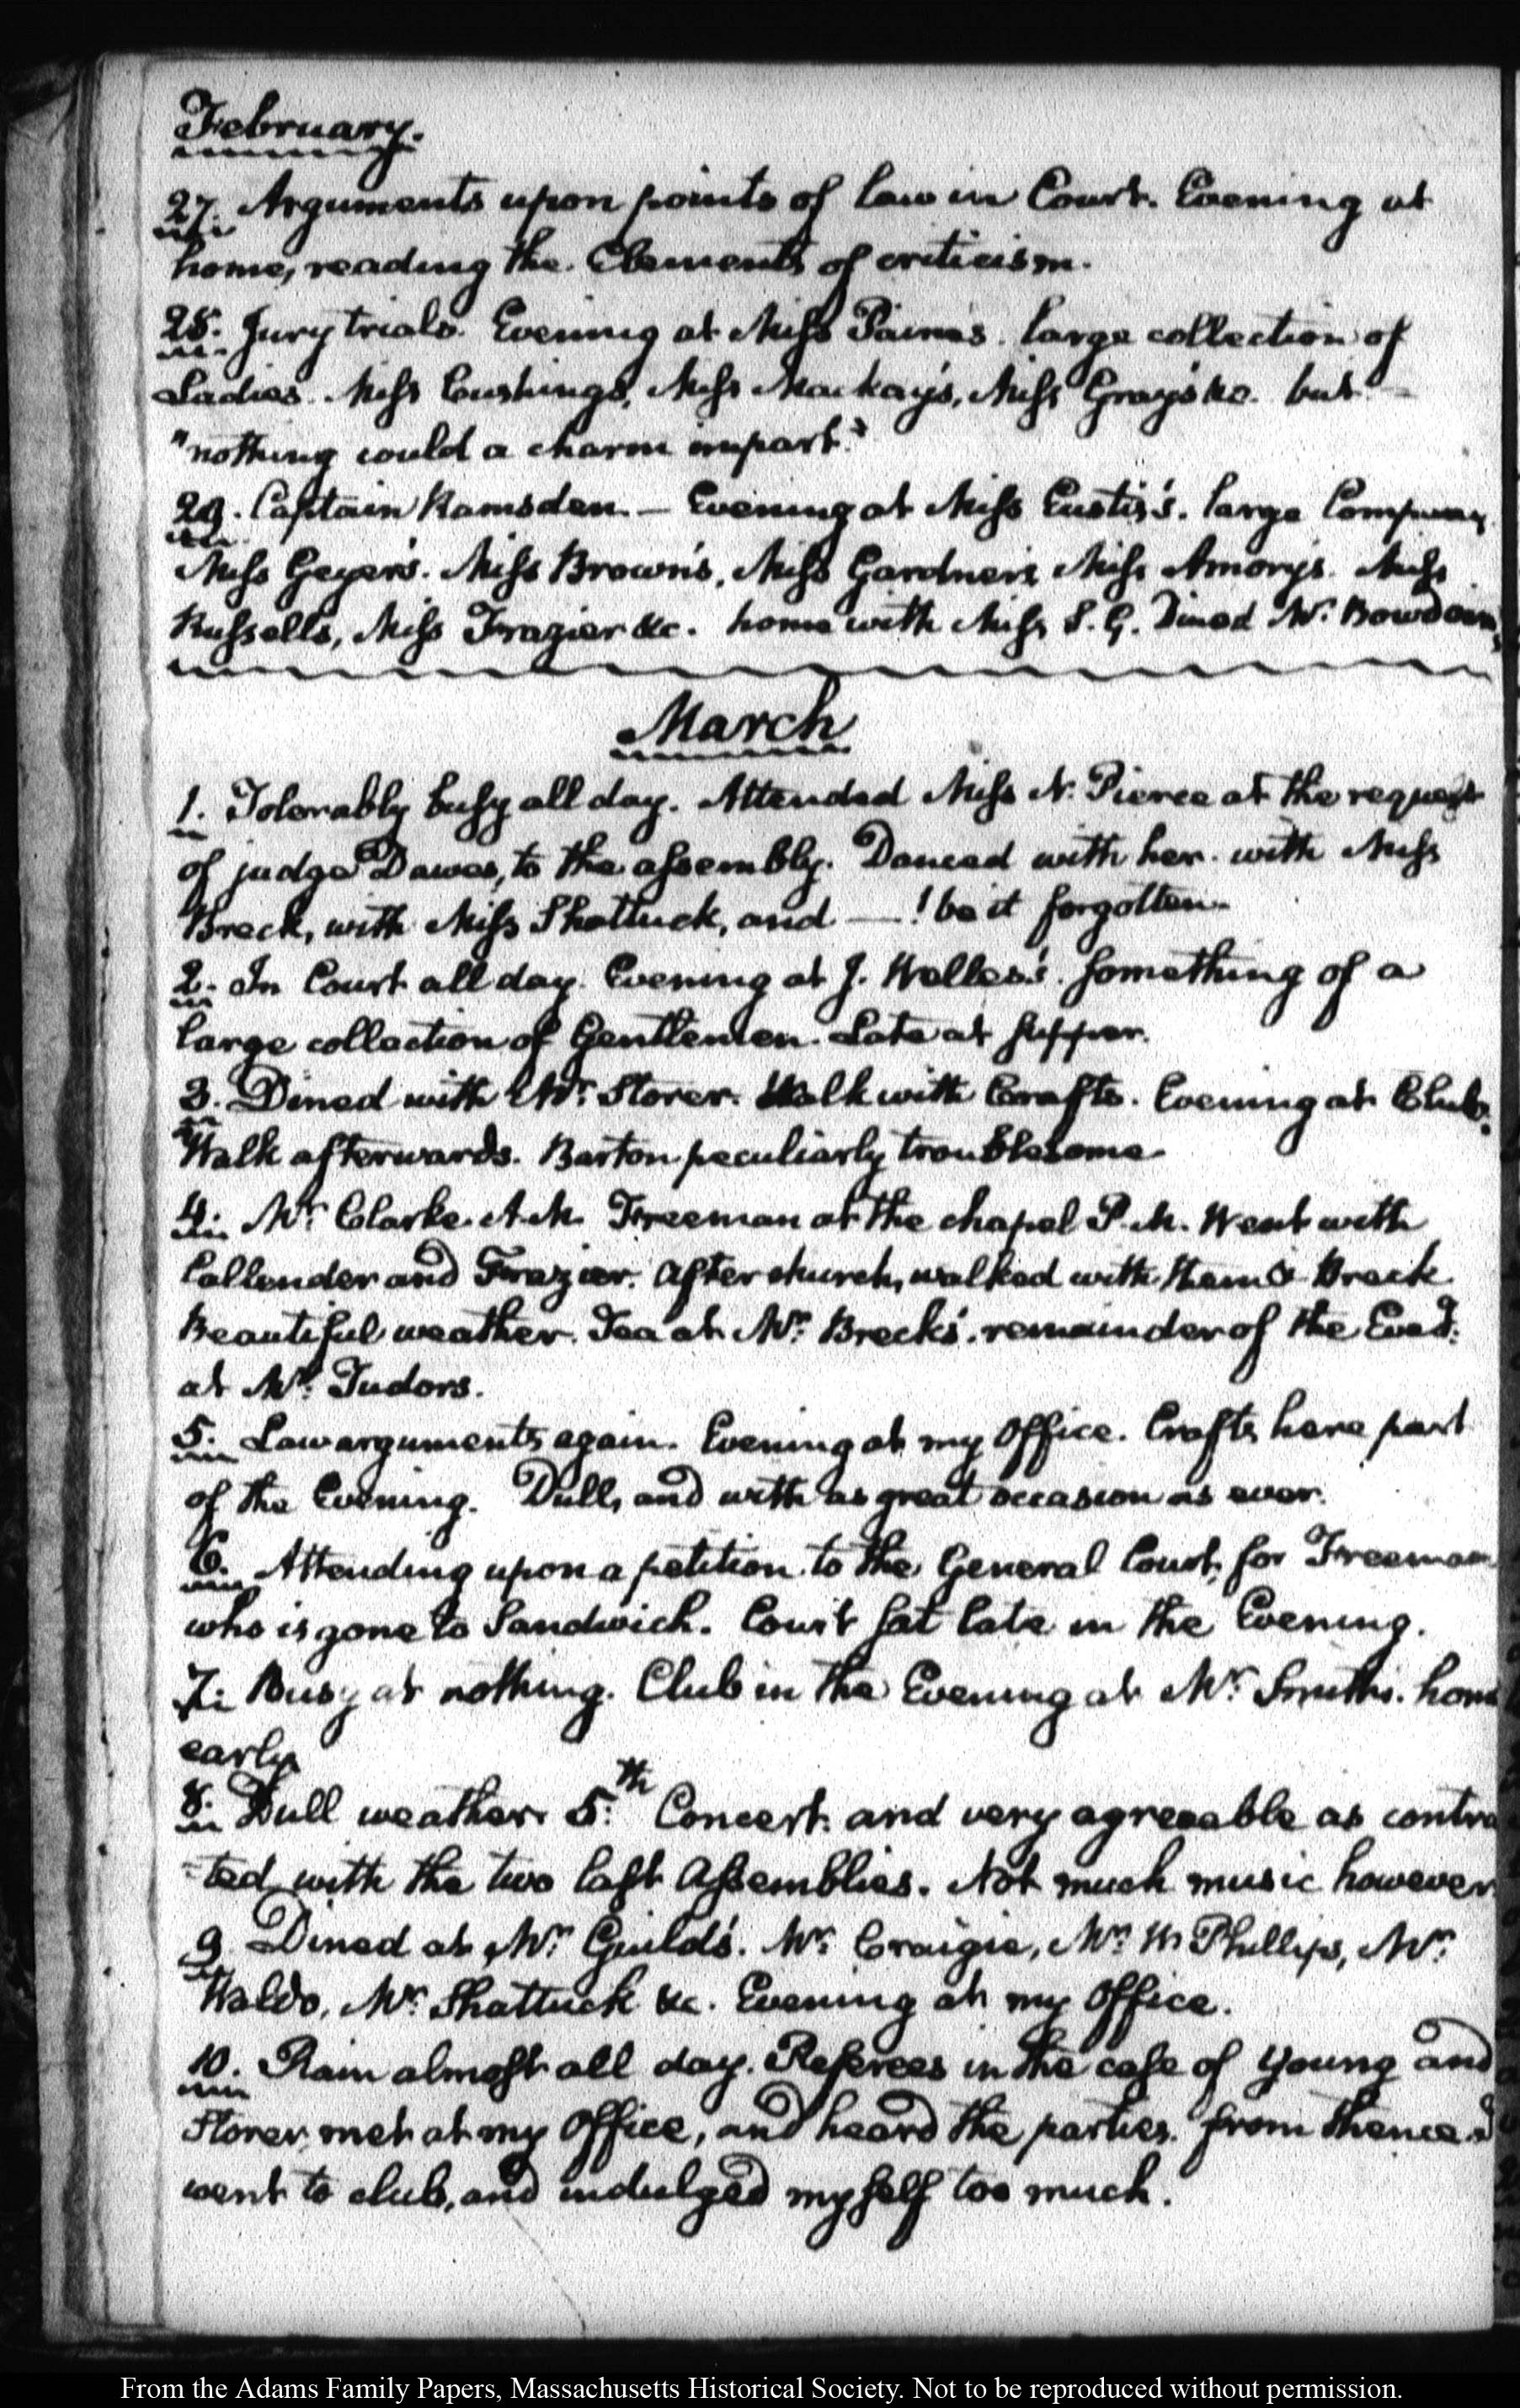 February.
27. Arguments upon points of law in Court. Evening at
home, reading the Elements of criticism.
28. Jury trials. Evening at Miss Paine's. large collection of
Ladies. Miss Cushings, Miss Mackay's, Miss Grays &c. but
"nothing could a charm impart."
29. Captain Ramsden. — Evening at Miss Eustis's. large Company
Miss Geyer's. Miss Brown's, Miss Gardner's Miss Amory's. Miss
Russells, Miss Frazier &c. home with Miss S. G. Dined Mr. Bowdoin's
March
1. Tolerably busy all day. Attended Miss N. Pierce at the request
of judge Dawes, to the assembly. Danced with her. with Miss
Breck, with Miss Shattuck, and — ! be it forgotten.
2. In Court all day. Evening at J. Welles's. something of a
large collection of Gentlemen. Late at supper.
3. Dined with Mr. Storer. Walk with Crafts. Evening at Club.
Walk afterwards. Barton peculiarly troublesome.
4. Mr. Clarke A.M. Freeman at the chapel P.M. Went with
Callender and Frazier. After church, walked with them & Breck.
Beautiful weather. Tea at Mr. Breck's. remainder of the Eveg.
at Mr. Tudors.
5. Law arguments again. Evening at my Office. Crafts here part
of the Evening. Dull, and with as great occasion as ever.
6. Attending upon a petition to the General Court, for Freeman
who is gone to Sandwich. Court sat late in the Evening.
7. Busy at nothing. Club in the Evening at Mr. Smith's. home
early
8. Dull weather. 5th. Concert and very agreeable as contra
-ted with the two last Assemblies. Not much music however
9. Dined at Mr. Guild's. Mr. Craigie, Mr. W Phillips, Mr.
Waldo, Mr. Shattuck &c. Evening at my Office.
10. Rain almost all day. Referees in the case of Young and
Storer met at my Office, and heard the parties. from thence
went to club, and indulged myself too much.
From the Adams Family Papers, Massachusetts Historical Society. Not to be reproduced without permission.